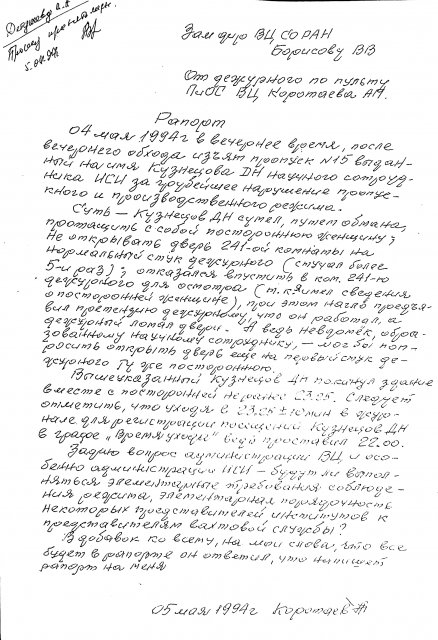 Прошу
5.04.94
Зам дир ВЦ СОРАН
Борисову ВВ
От дежурного по пульту
ПиОС ВЦ Коротаева АН.
Рапорт
04 мая 1994г в вечернее время, после
вечернего обхода изъят пропуск №15 выдан-
ный на имя Кузнецова ДН научного сотруд-
ника ИСИ за грубейшее нарушение пропус-
кного и производственного режима.
Суть – Кузнецов ДН сумел, путем обмана,
протащить с собой постороннюю женщину;
не открывать дверь 241-ой комнаты на
нормальный стук дежурного (стучал более
5-и раз); отказался впустить в ком. 241-ю
дежурного для осмотра (т.к. имел сведения
о посторонней женщине), при этом нагло предъя-
вил претензию дежурному, что он работал, а
дежурный ломал двери. А ведь невдомёк, обра-
зованному научному сотруднику, – мог бы поп-
росить открыть дверь еще на первый стук де-
журного Ту же постороннюю.
Вышеуказанный Кузнецов ДН покинул здание
вместе с посторонней не ранее 23.05. Следует
отметить, что уходя в 23.05 ± 10мин в жур-
нале для регистрации посещений Кузнецов ДН
в графе „Время ухода" проставил 22.00.
Задаю вопрос администрации ВЦ и осо-
бенно администрации ИСИ – будут ли выпол-
няться элементарные требования соблюде-
ния режима, элементарная порядочность
некоторых представителей институтов к
представителям вахтовой службы?
В добавок ко всему, на мои слова, что все
будет в рапорте он ответил, что напишет
рапорт на меня
05 мая 1994г Коротаев